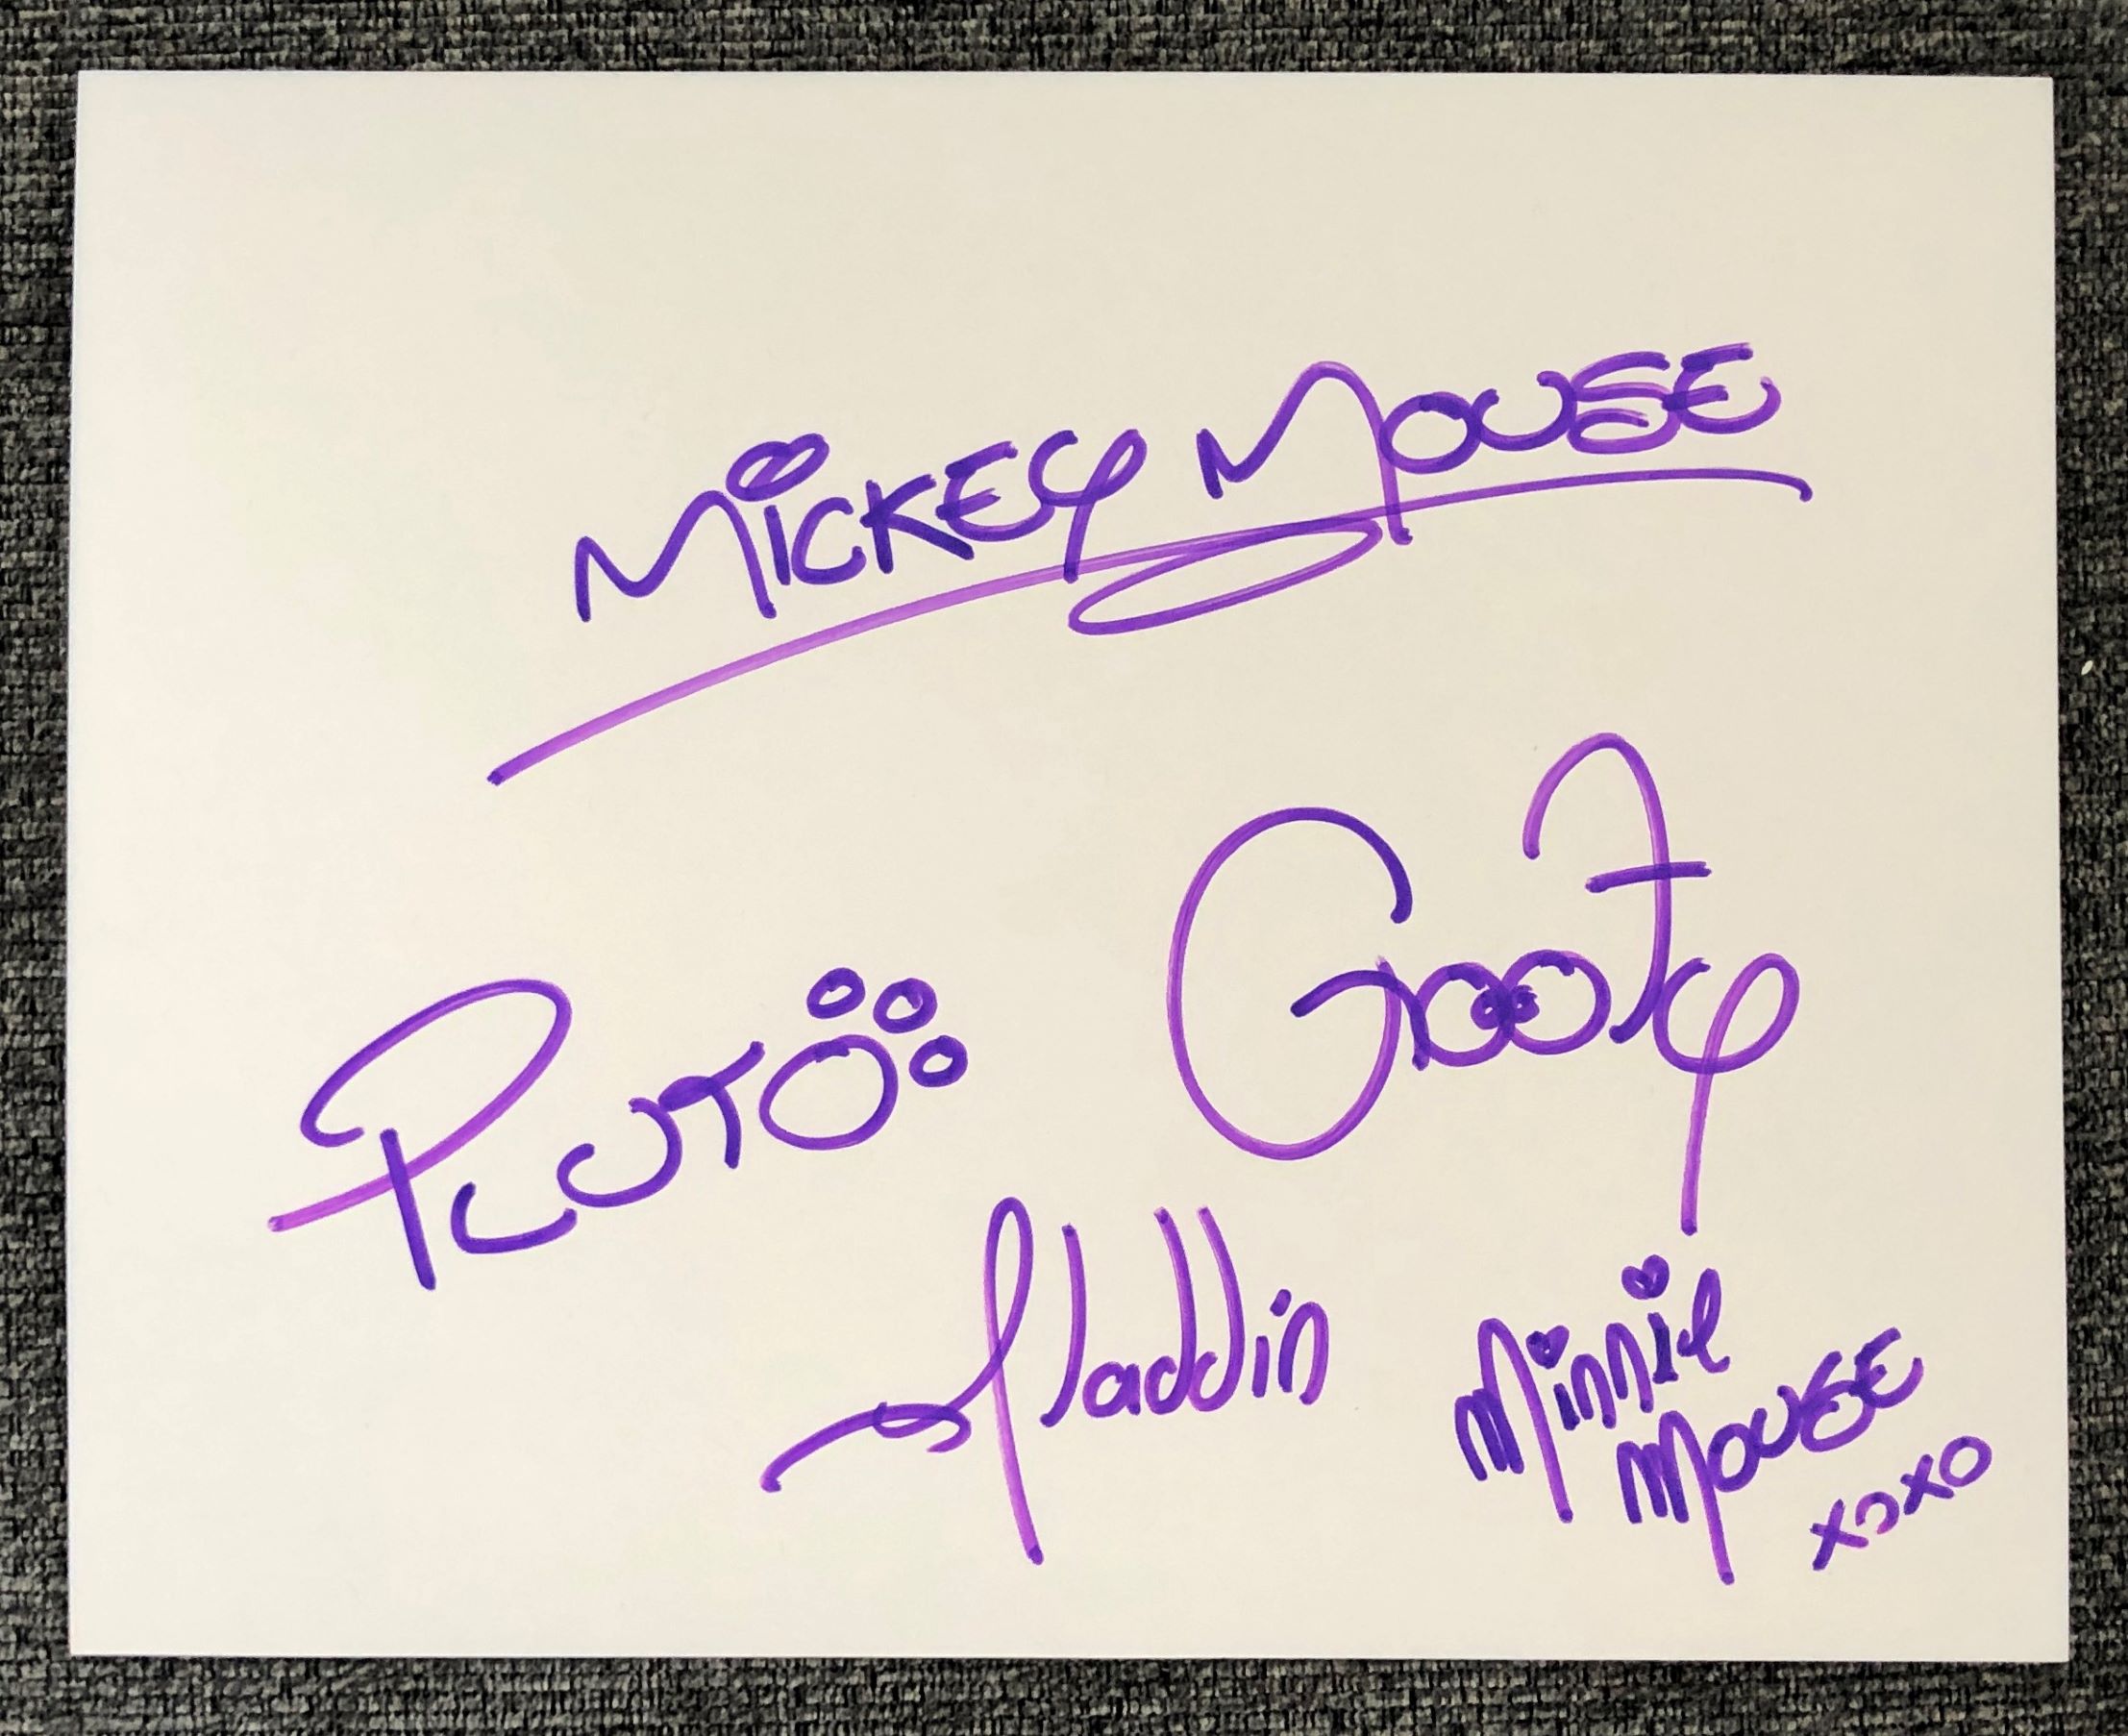 MICKEY MOUSE
GOOFY
PLUTO
Aladdin
Minnie
MOUSE
XOXO